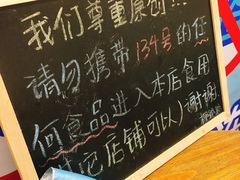 我们尊重原创!!!
请勿携带134号的任
何食品进入本店食用
记店铺可以)谢谢